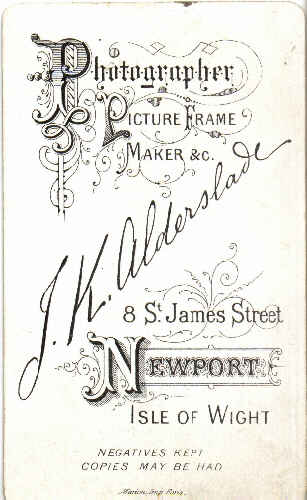 Photographer
Picture Frame
Maker & c.
J. K. Alderslade
8 St. James Street
Newport.
Isle of Wight
NEGATIVES KEPT
COPIES MAY BE HAD
Marion, Imp. Paris.